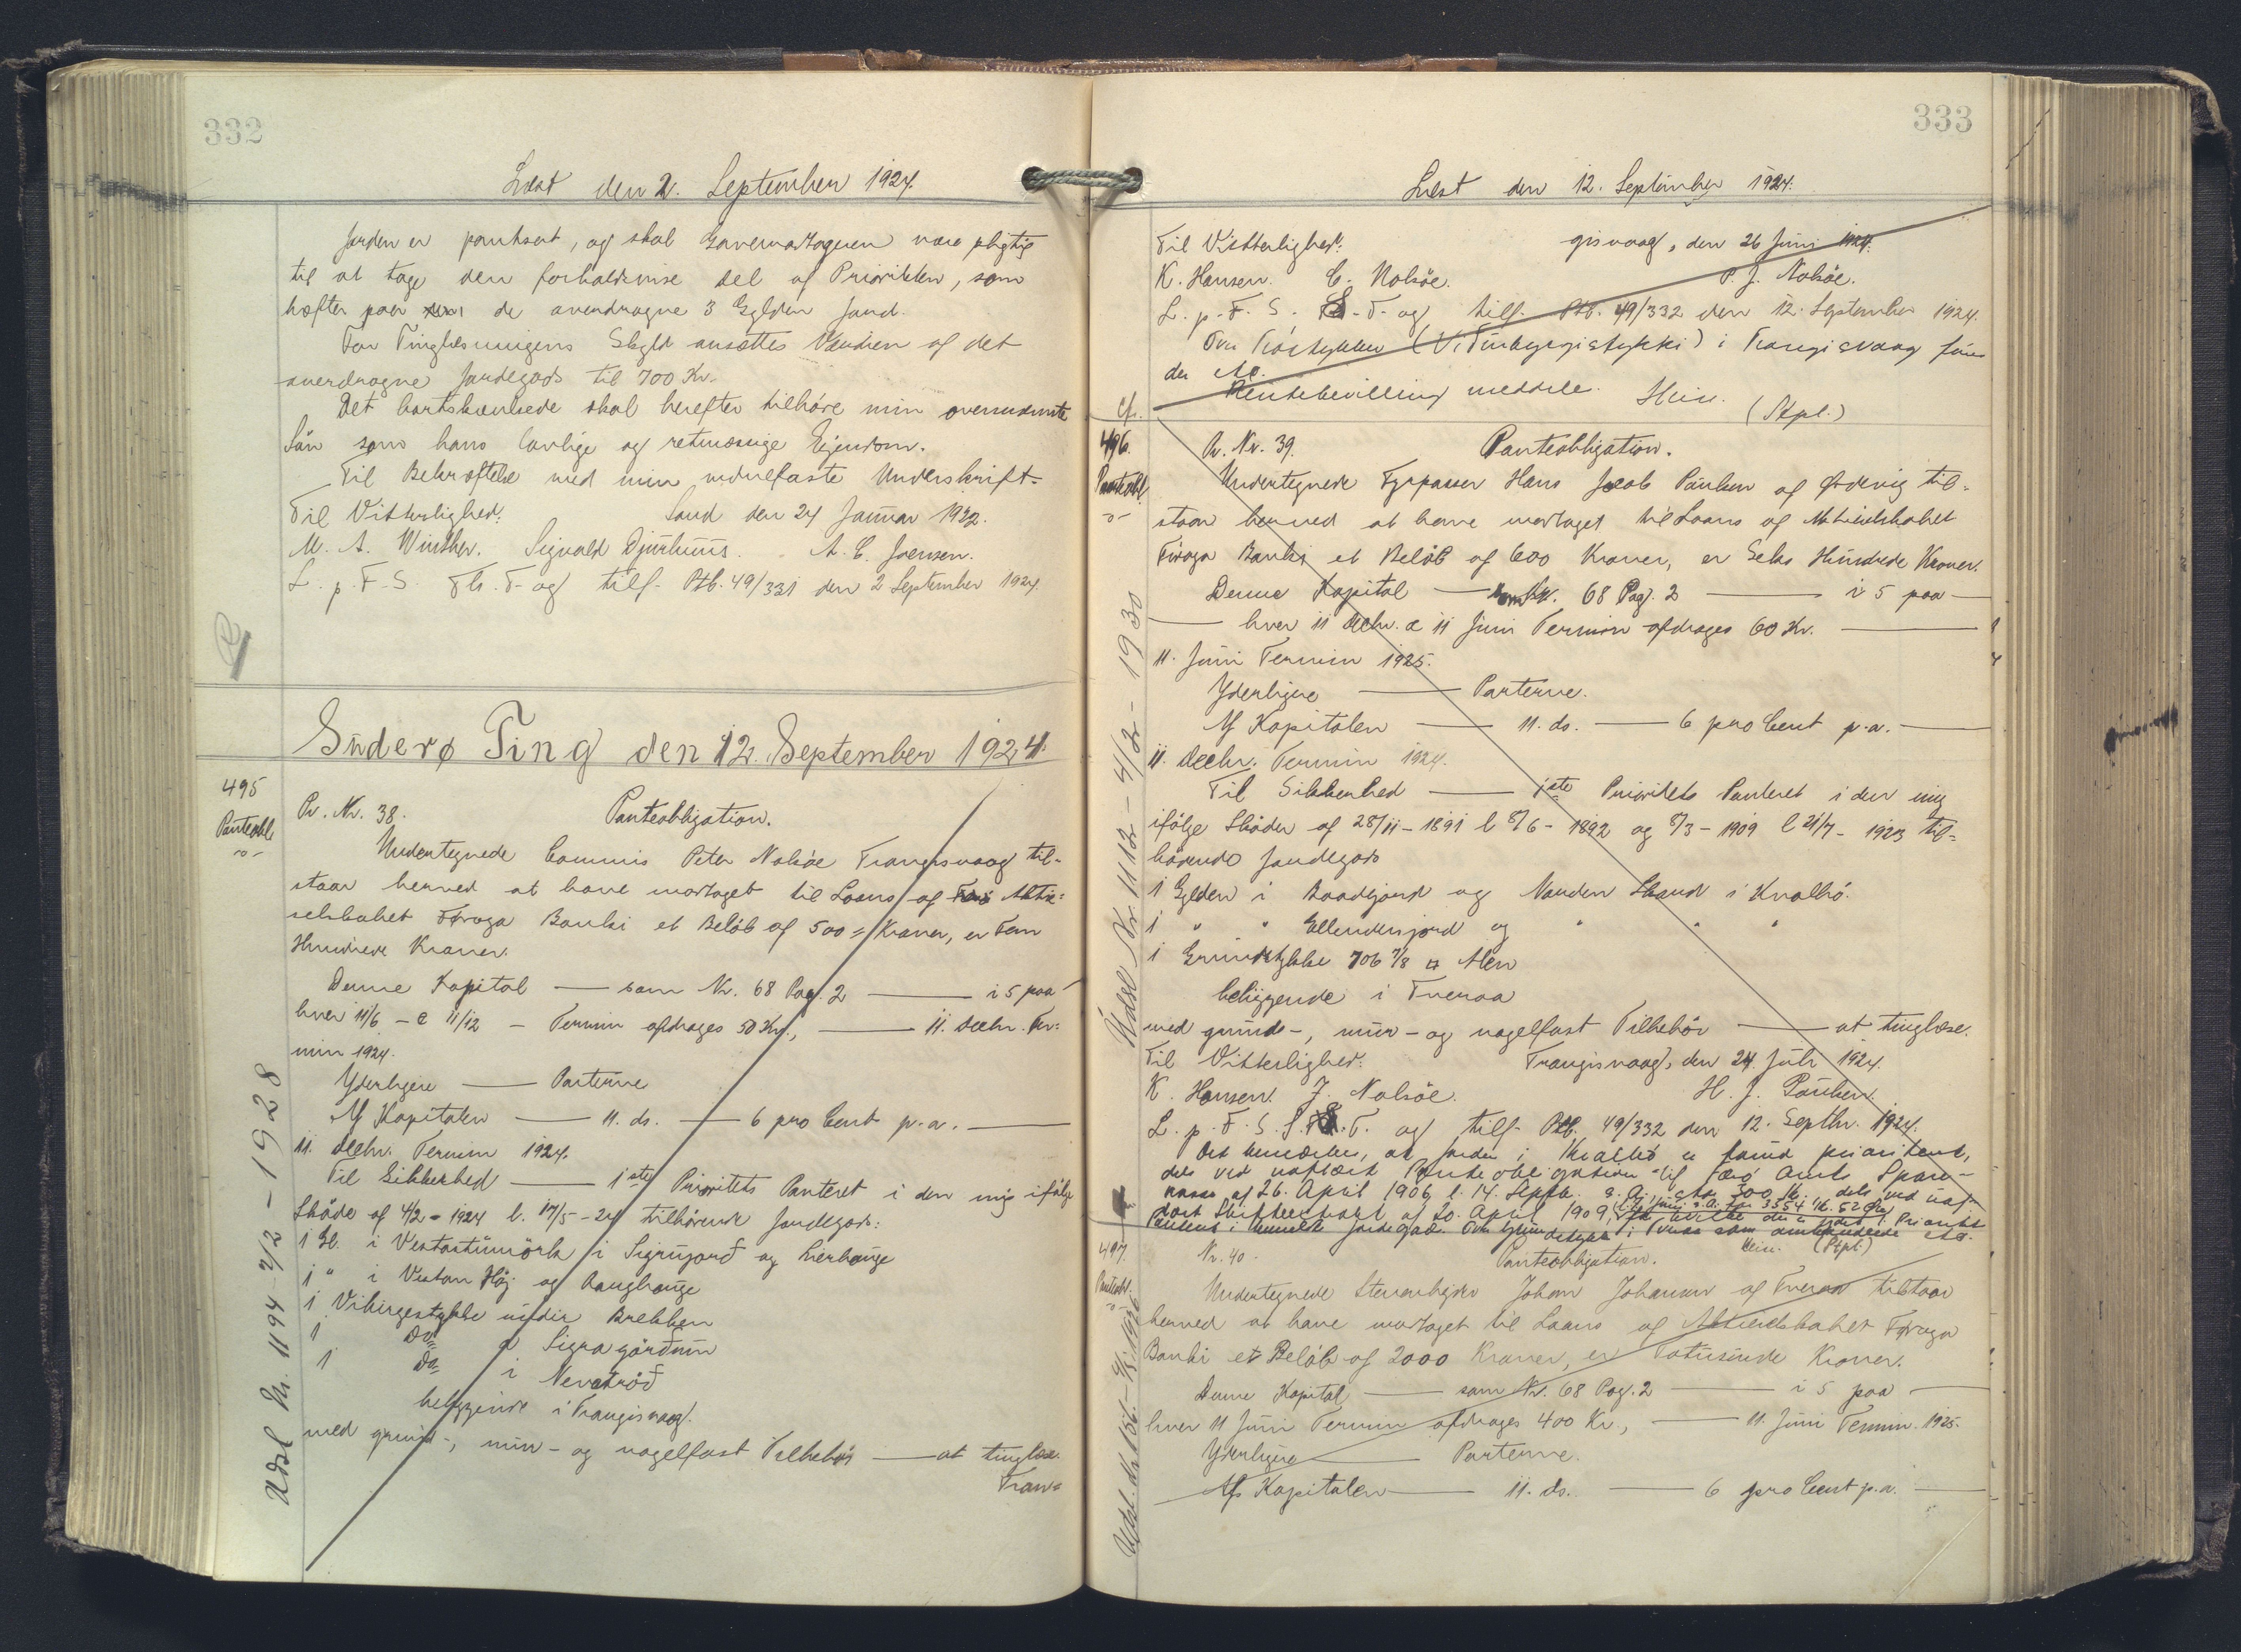 332
Læst den 2. September 1924.
Jorden er pantsat, og skal Gavemodtageren være pligtig
til at tage den forholdsvise Del af Prioriteten, som
hæfter paa de overdragne 3 Gylden Jord.
For Tinglæsningens Skyld ansættes Værdien af det
overdragne Jordegods til 700 Kr.
Det bortskænkede skal herefter tilhøre min ovennævnte
Sön som hans lovlige og retmæssige Ejendom.
Til Bekræftelse med min vedrulfaste Underskrift-
Til Vitterlighed: Sand den 24 Januar 1922.
M. A. Winther. Sigvald Djurhuus. A. C. Joensen.
L. p. F. S. T. og tilf. Ptb. 49/331 den 2 September 1924.
Suderø Ting den 12. September 1924.
495
Panteobl.
Pr. Nr. 38. Panteobligation.
Undertegnede Commis Peter Nolsöe Trangisvaag til-
staar herved at have modtaget til Laans af Aktie-
selskabet Føroya Banki et Beløb af 500 = Kroner, er Fem
Hundrede Kroner.
Denne Kapital — som Nr. 68 Pag. 2 — i 5 paa
hver 11/6 - & 11/12 - Termin afdrages 50 Kr., — 11. Decbr. Ter-
min 1924.
Yderligere — Parterne
Af Kapitalen — 11. ds. — 6 pro Cent p.a. —
11. Decbr. Termin 1924.
Til Sikkerhed — 1ste Prioritets Panteret i den mig ifölge
Sköde af 4/2 - 1924 l. 17/5 - 24 tilhörende Jordegods:
1 Gl. i Vestastumörk i Sigrugjorð og
1 " i Vestan Höj og
1 Vikingestykke undir Brekken
1 Do = a Sigragörðum
1 Do = i
beliggende i Trangisvaag.
med grund-, mur- og nagelfast Tilbehör — at tinglæse.
Tran=
Udsl. Nr. 1194 - 4/2 - 1928
333
Læst den 12. September 1924.
Til Vitterlighed: gisvaag, den 26 Juni 1924.
K. Hansen. C. Nolsöe. P. J. Nolsöe.
L. p. F. S. T. og tilf. Ptb. 49/332 den 12. September 1924.
i Trangisvaag
der
Rentebevilling meddele. Hein. (Stpl.)
Cfr.
496.
Panteobl.
Pr. Nr. 39. Panteobligation.
Undertegnede Fyrpasser Hans Jacob Poulsen af Ørdevig til-
staar herved at have modtaget til Laans af Aktieselskabet
Føroya Banki et Beløb af 600 Kroner, er Seks Hundrede Kroner.
Denne Kapital — som Nr. 68 Pag. 2 — i 5 paa —
— hver 11 Decbr. & 11 Juni Termin afdrages 60 Kr. —
11. Juni Termin 1925.
Yderligere — Parterne.
Af Kapitalen — 11. ds. — 6 pro Cent p.a. —
11. Decbr. Termin 1924.
Til Sikkerhed — 1ste Prioritets Panteret i den mig
ifölge Skøder af 28/11 - 1891 l 8/6 - 1892 og 8/3 - 1909 l 21/7 - 1923 til-
hörende Jordegods
1 Gylden i Baadgjord og Nordenskand i Kvalbö.
1 " " Ellendersjord og " " "
1 Grundstykke 706 7/8 □ Alen
beliggende i Tveraa
med grund-, mur- og nagelfast Tilbehör — at tinglæse.
Til Vitterlighed: Trangisvaag, den 24. Juli 1924.
K. Hansen. J. Nolsöe. H. J. Poulsen.
L. p. F. S. T. og tilf. Ptb. 49/332 den 12. Septbr. 1924.
Det bemærkes, at Jorden i Kvalbö er fund prioriteret,
dels ved uaflæst Panteobligation til Færö Amts Spare-
kasse af 26. April 1906, l. 14. Septb. s. A., stor 300 K. dels ved uaf-
löst Skifteextrakt af 20. April 1909,
i Tveraa som
Hein. (Stpl.)
Udsl. Nr. 1112 - 4/2 - 1930
497.
Panteobl.
Nr. 40. Panteobligation.
Undertegnede Stenarbejder Johan Johansen af Tveraa tilstaar
herved at have modtaget til Laans af Aktieselskabet Føroya
Banki et Beløb af 2000 Kroner, er Totusinde Kroner.
Denne Kapital — som Nr. 68 Pag. 2 — i 5 paa —
hver 11 Juni Termin afdrages 400 Kr., — 11. Juni Termin 1925.
Yderligere — Parterne.
Af Kapitalen — 11. ds. — 6 pro Cent p.a. —